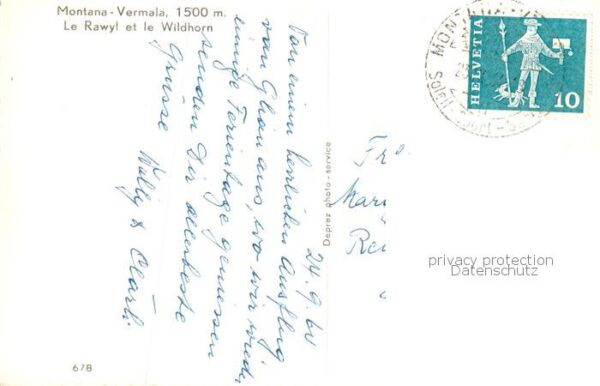 Montana-Vermala, 1500 m.
Le Rawyl et le Wildhorn
24.9.60
Von einem herrlichen Ausflug
von aus, wo wir wieder
einige Ferientage geniessen
senden Dir allerbeste
Grüsse Willy & Clärli.
Deprez photo-service
678
Fr
Mari
Re
MONTANA
Soleil
HELVETIA
10
privacy protection
Datenschutz